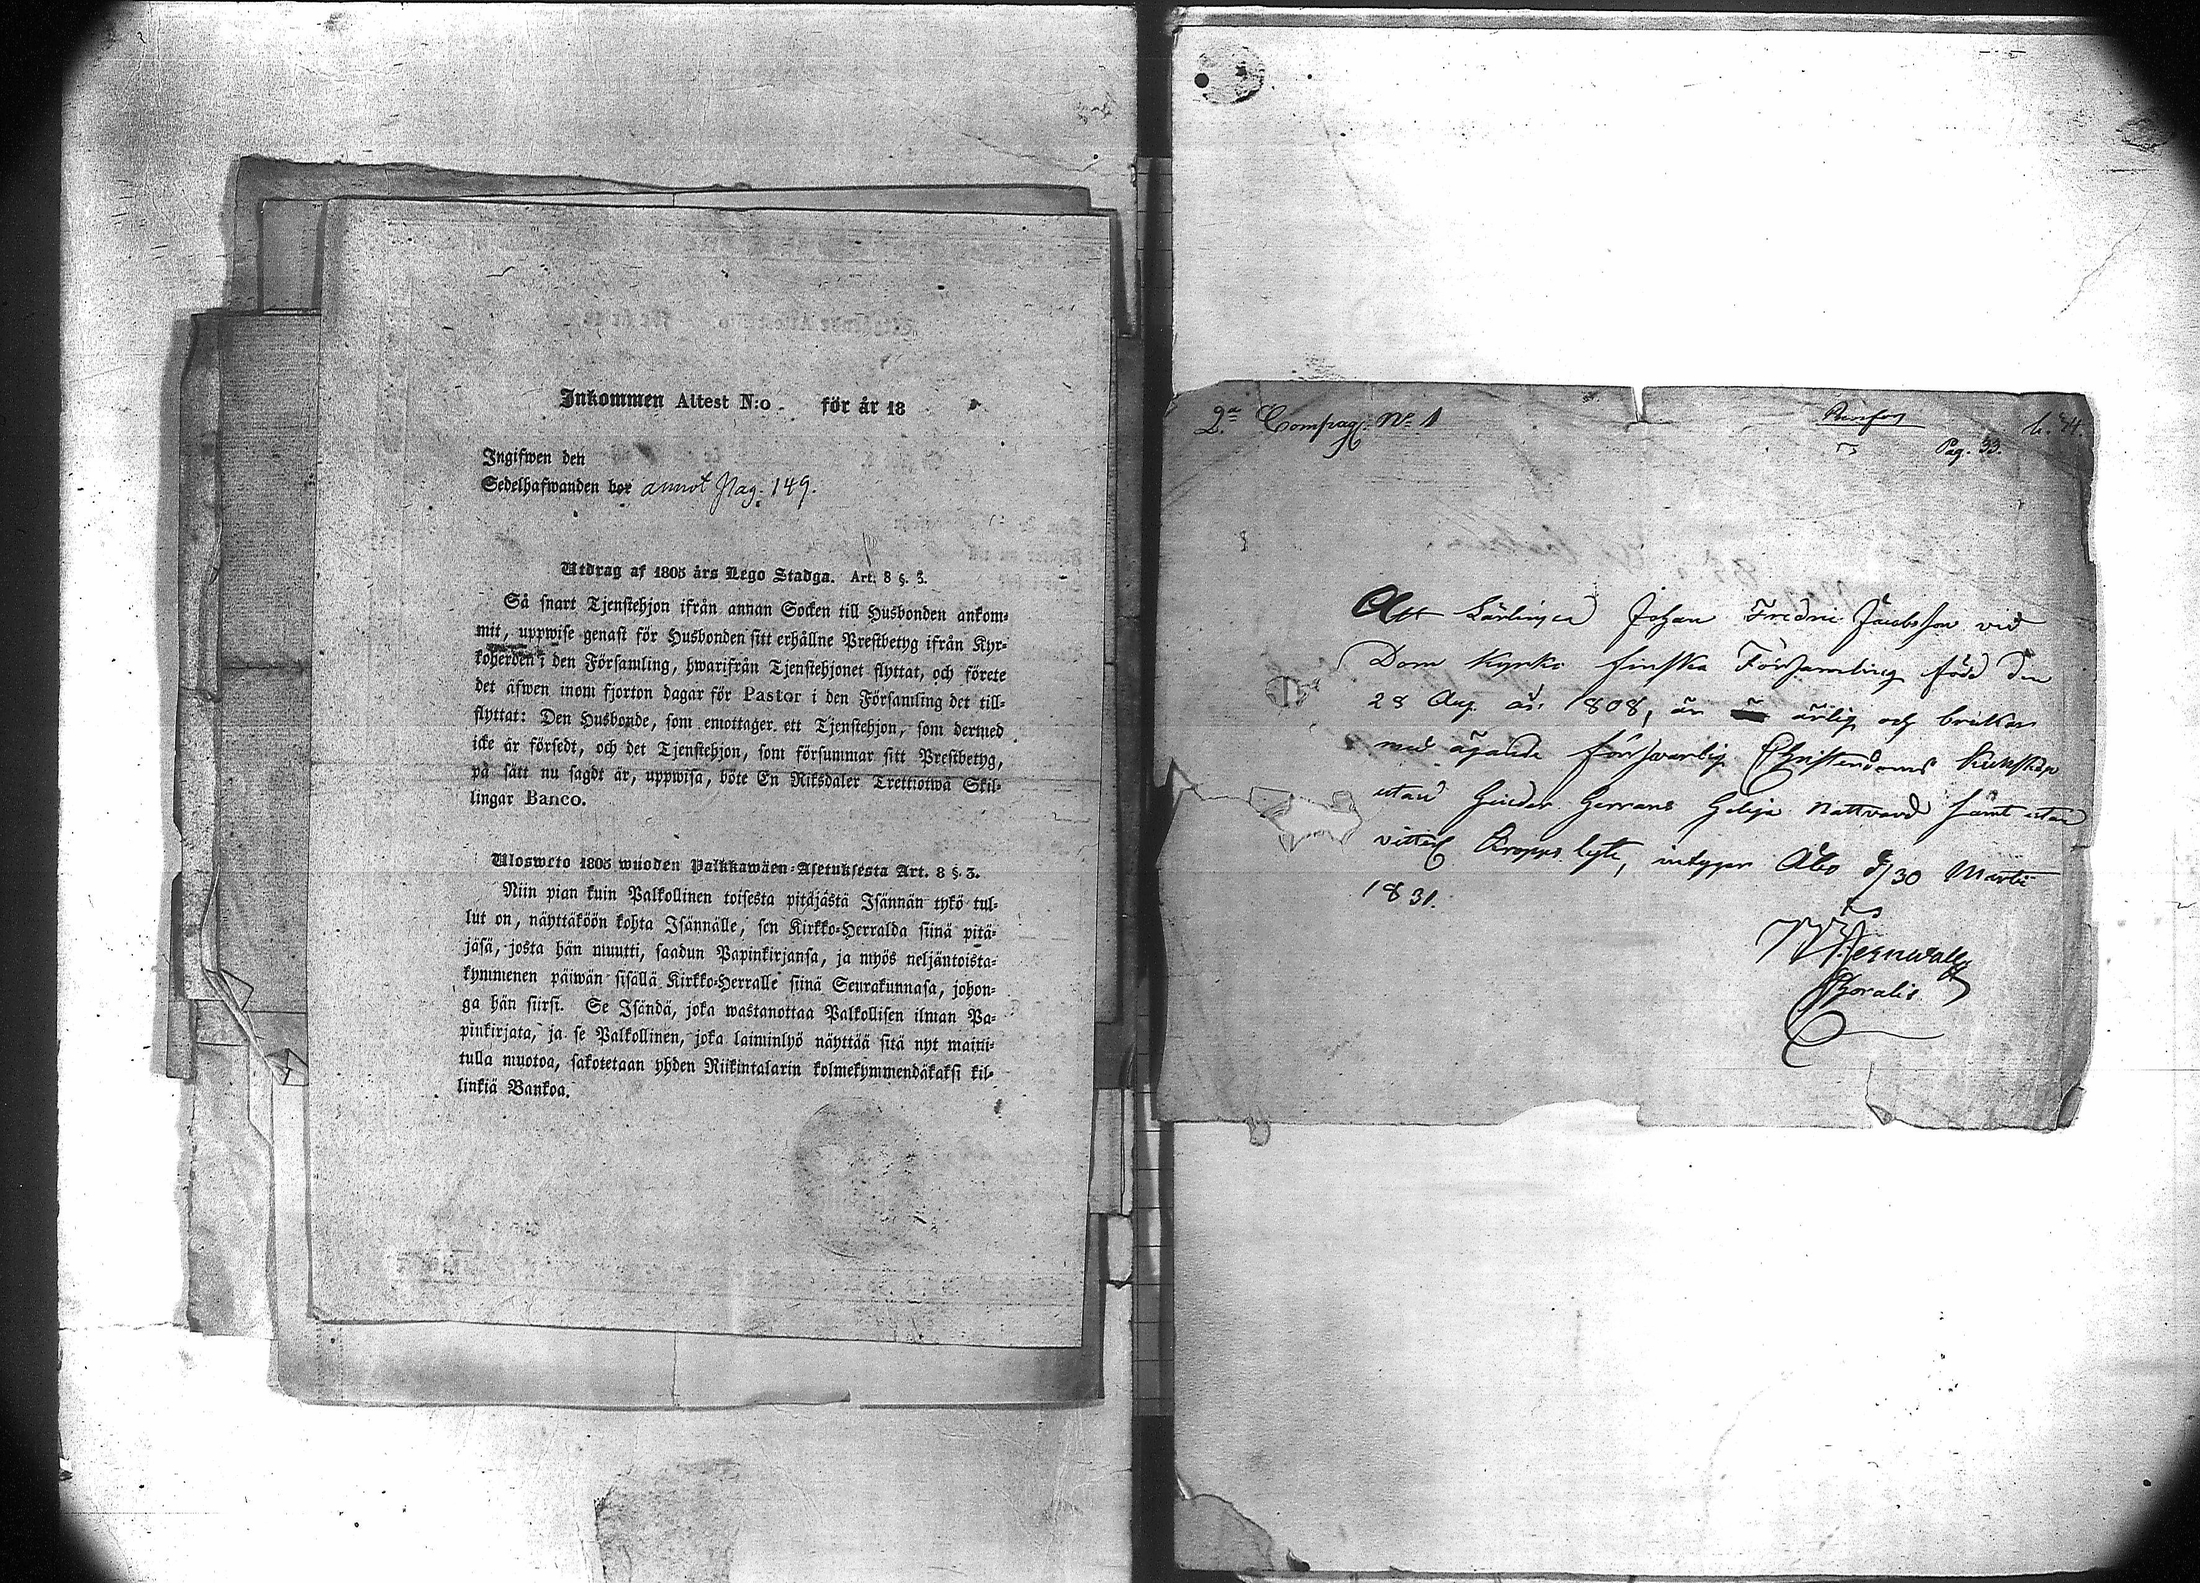 Inkommen Attest N:o för år 18
Ingifwen den
Sedelhafwanden bor annot Pag. 149.
Utdrag af 1805 års Lego Stadga. Art. 8 §. 3.
Så snart Tjenstehjon ifrån annan Socken till Husbonden ankom-
mit, uppwise genast för Husbonden sitt erhållne Prestbetyg ifrån Kyr-
koherden i den Församling, hwarifrån Tjenstehjonet flyttat, och förete
det äfwen inom fjorton dagar för Pastor i den Församling det till-
flyttat: Den Husbonde, som emottager ett Tjenstehjon, som dermed
icke är försedt, och det Tjenstehjon, som försummar sitt Prestbetyg,
på sätt nu sagdt är, uppwisa, böte En Riksdaler Trettiotwå Skil-
lingar Banco.
Ulosweto 1805 wuoden Palkkawäen-Asetuksesta Art. 8 §. 3.
Niin pian kuin Palkollinen toisesta pitäjästä Isännän tykö tul-
lut on, näyttäköön kohta Isännälle, sen Kirkko-Herralda siinä pitä-
jäsä, josta hän muutti, saadun Papinkirjansa, ja myös neljäntoista-
kymmenen päiwän sisällä Kirkko-Herralle siinä Seurakunnasa, johon-
ga hän siirsi. Se Isändä, joka wastanottaa Palkollisen ilman Pa-
pinkirjata, ja se Palkollinen, joka laiminlyö näyttää sitä nyt maini-
tulla muotoa, sakotetaan yhden Riikintalarin kolmekymmendäkaksi kil-
linkiä Bankoa.
2:a Compag: No 1
Pag. 33.
Att Lärlingen Johan Fredric Jacobsson vid
Dom Kyrko finska Församling född den
28 Aug. år 1808, är ärlig och
med ägande försvarlig Christendoms kunskap
utan hinder Herrans Helija Nattvard samt utan
vitterl. kropps lyte, intygar Åbo d. 30 Martii
1831.